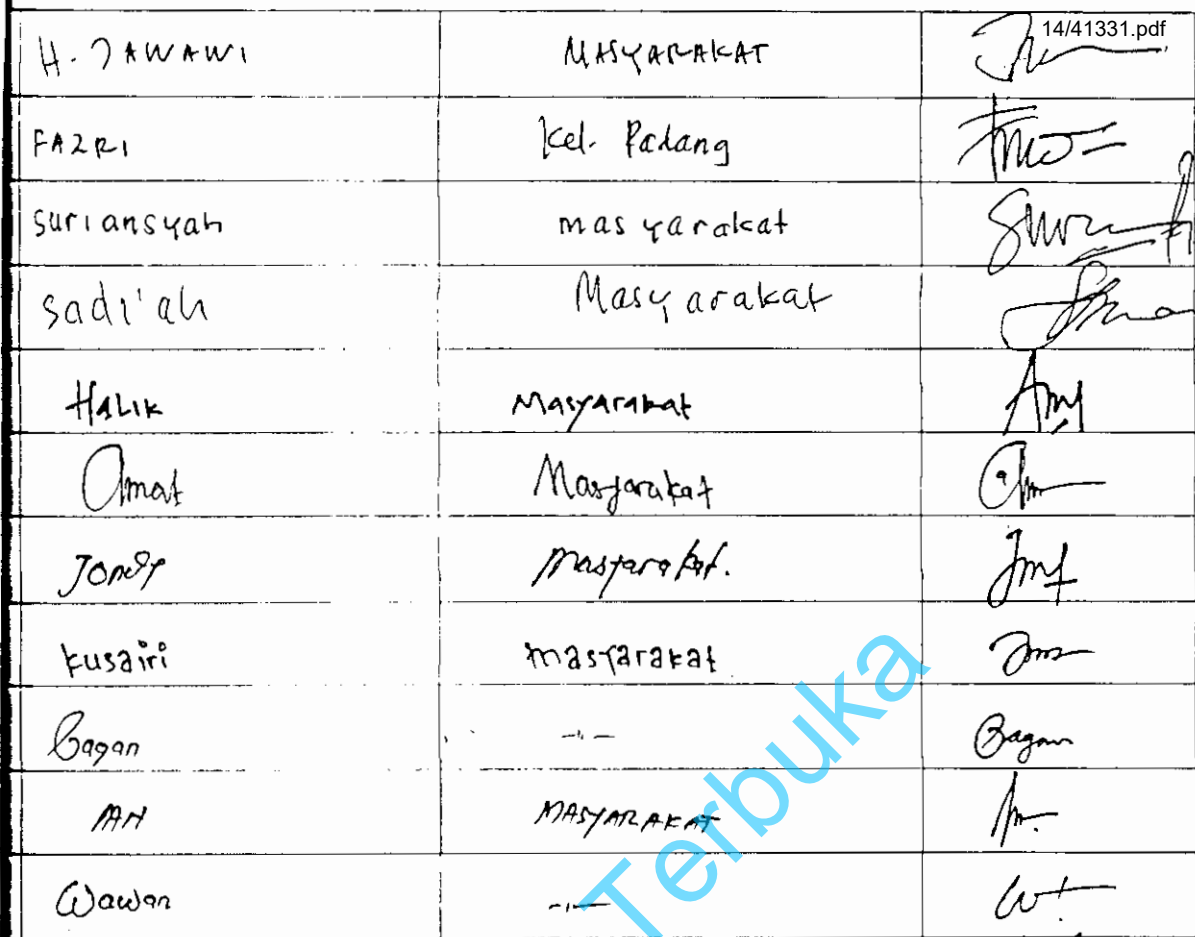 14/41331.pdf
H. JAWAWI MASYARAKAT
FAZRI Kel. Padang
Suriansyah masyarakat
Sadi'ah Masyarakat
HALIK Masyarakat
Amat Masyarakat
Masyarakat.
kusairi masyarakat
Bagan -"- Bagan
MASYARAKAT
Wawan -"-
Terbuka